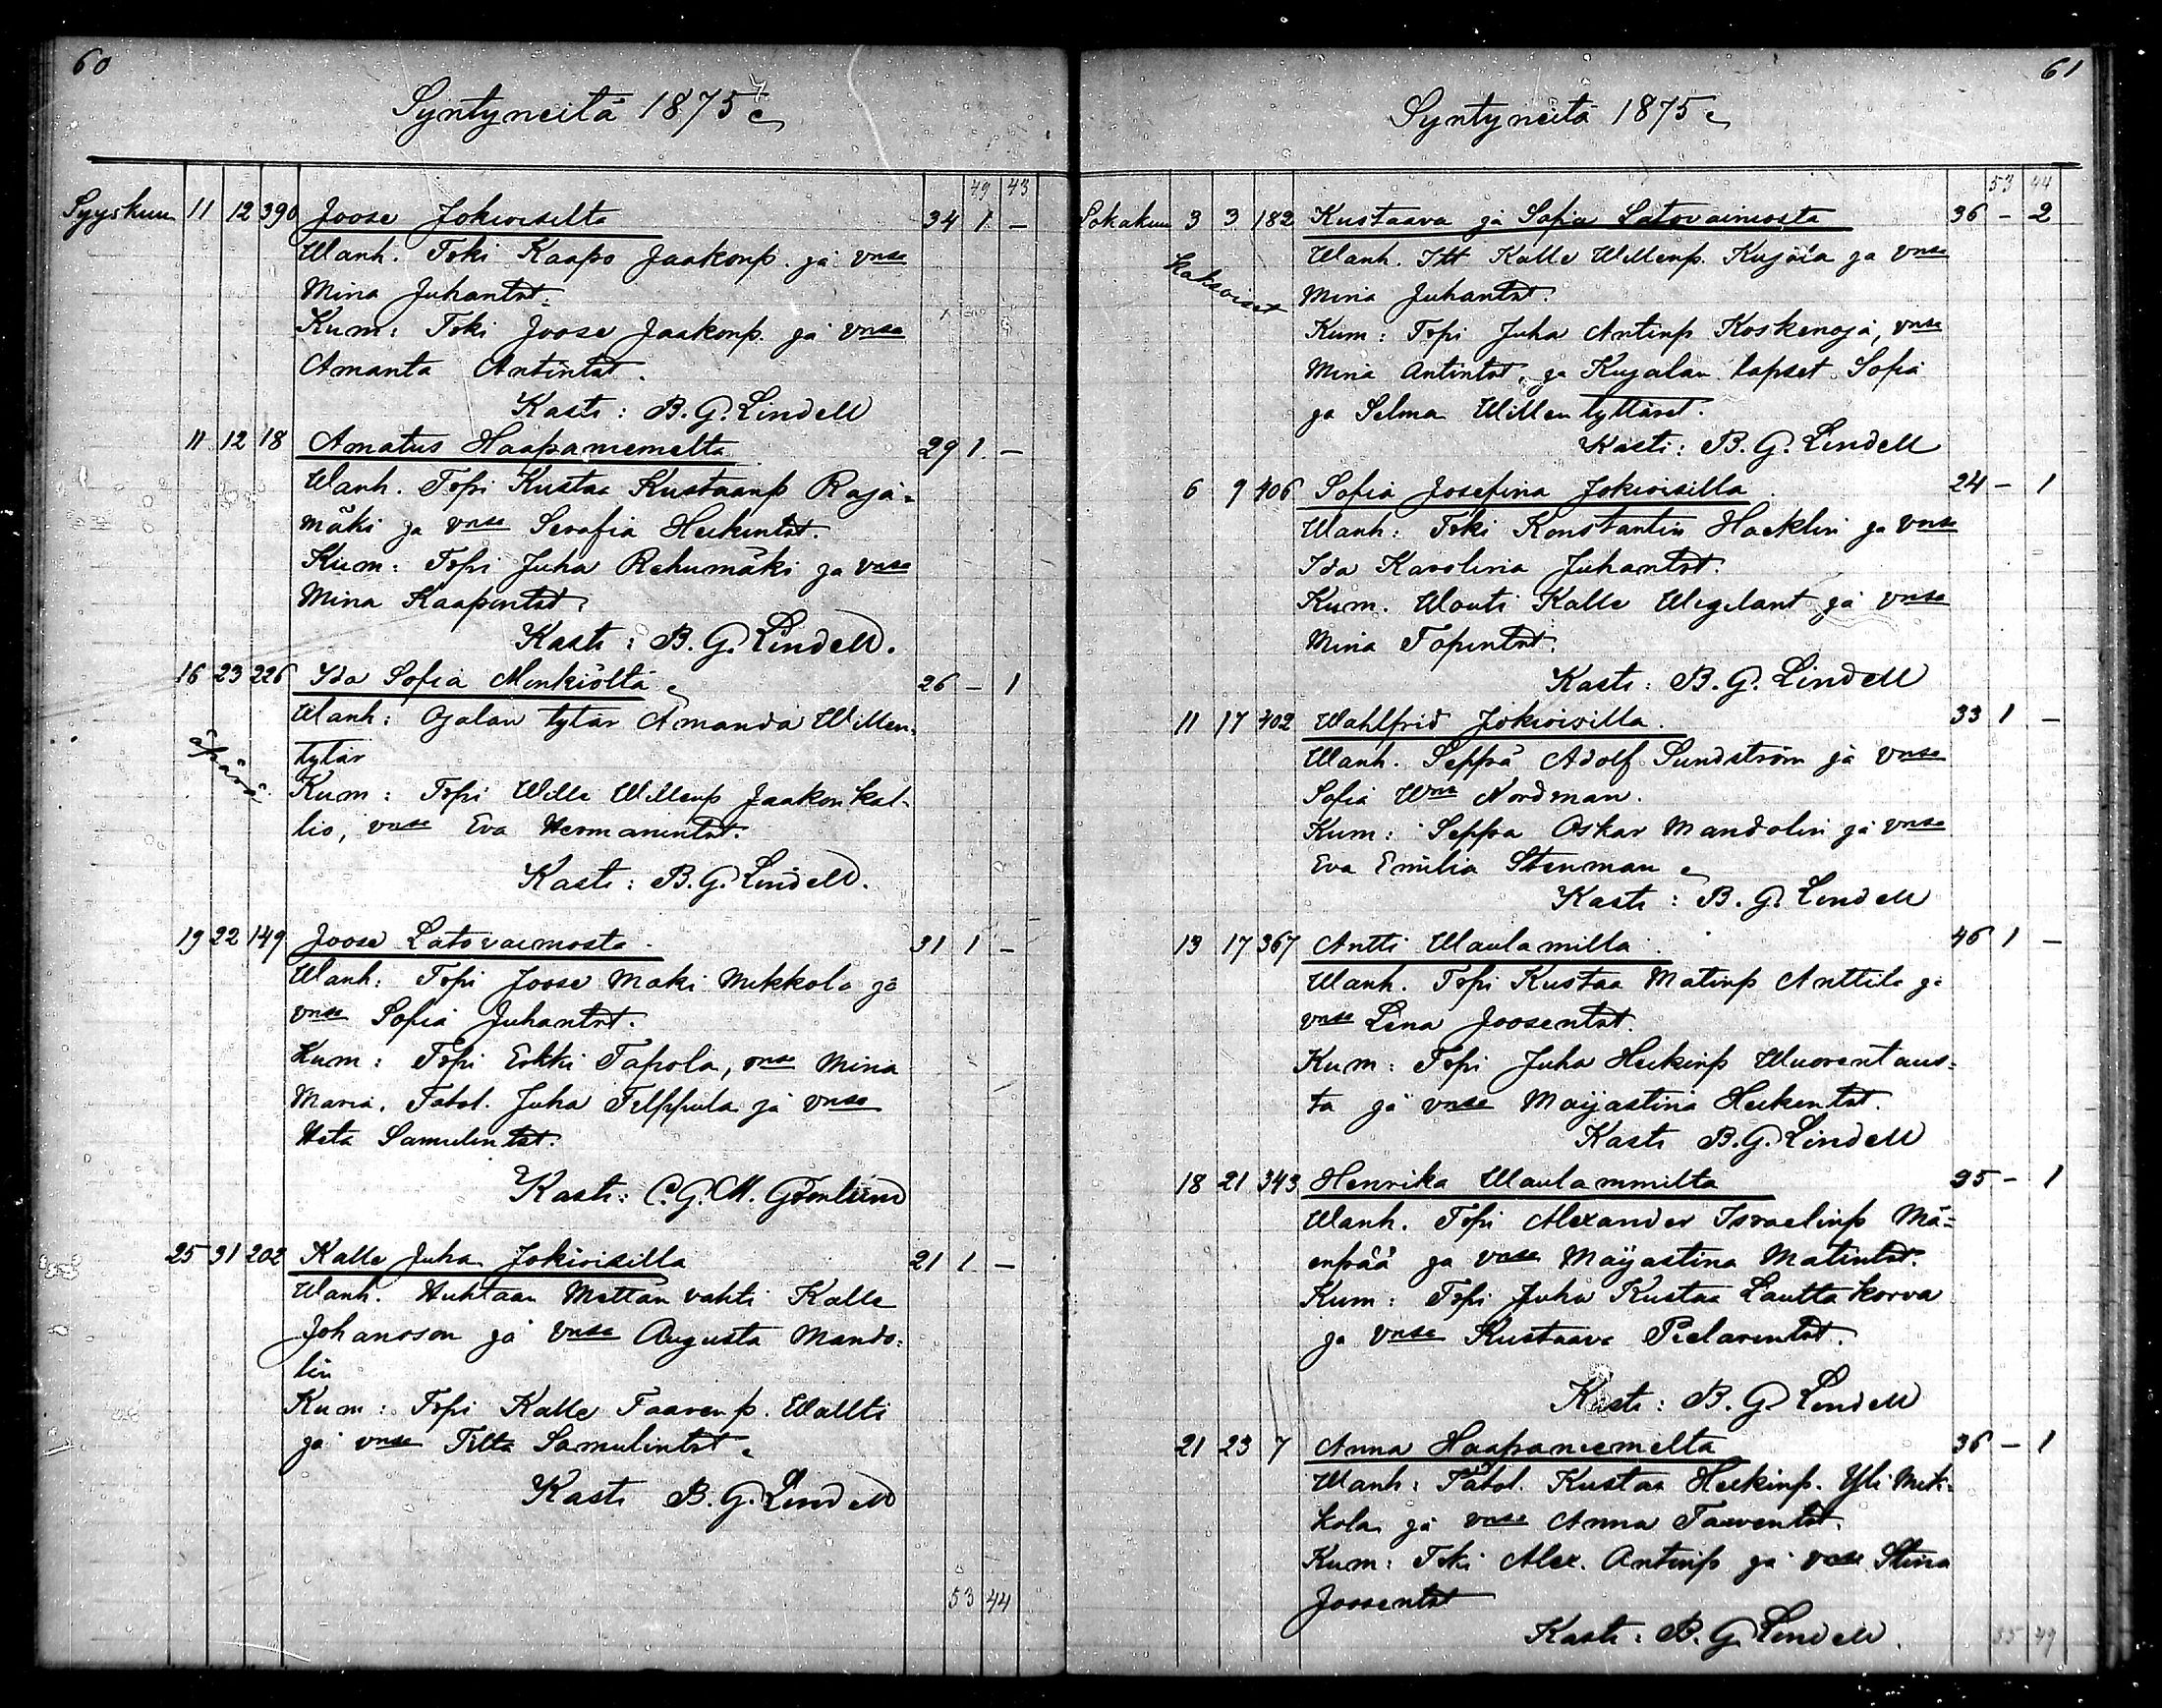 60
Syntyneitä 1875
49 43
Syyskuun 11 12 390 Joose Jokioisilta 34 1 –
Wanh. Trki Kaapo Jaakonp. ja vmsa
Mina Juhantrt.
Kum: Trki Joose Jaakonp. ja vmsa
Amanta Antintrt.
Kasti: B. G. Lindell
11 12 18 Amatus Haapaniemeltä 29 1 –
Wanh. Trpi Kustaa Kustaanp Raja-
mäki ja vmsa Serafia Heikintrt.
Kum: Trpi Juha Rehumäki ja vmsa
Mina Kaapontrt.
Kasti: B. G. Lindell.
16 23 226 Ida Sofia Minkiöltä 26 – 1
Wanh: Ojalan tytär Amanda Willen-
äpärä
tytär
Kum: Trpi Wille Willenp Jaakon kal-
lio, vmsa Eva Hermanintrt.
Kasti: B. G. Lindell.
19 22 149 Joose Latovainiosta 31 1 –
Wanh: Trpi Joose Mäki Mikkola ja
vmsa Sofia Juhantrt.
Kum: Trpi Erkki Tapola, vmsa Mina
Maria. Tatol. Juha Tilppula ja vmsa
Heta Samulintrt.
Kasti: C. G. M. Grönlund
25 31 202 Kalle Juha Jokioisilla 21 1 –
Wanh. Huhtaan Mettän vahti Kalle
Johansson ja vmsa Augusta Mando-
lin
Kum: Trpi Kalle Taavenp. Wallti
ja vmsa Tilta Samulintrt.
Kasti B. G. Lindell
53 44
61
Syntyneitä 1875
53 44
Lokakuun 3 3 182 Kustaava ja Sofia Latovainiosta 36 – 2
Kaksoiset
Wanh. Itt Kalle Willenp. Kujala ja vmsa
Mina Juhantrt.
Kum: Trpi Juha Antinp Koskenoja, vmsa
Mina Antintrt. ja Kujalan lapset Sofia
ja Selma Willen tyttäret.
Kasti: B. G. Lindell
6 9 406 Sofia Josefina Jokioisilla 24 – 1
Wanh: Trki Konstantin Hacklin ja vmsa
Ida Karolina Juhantrt.
Kum. Wouti Kalle Wigelant ja vmsa
Mina Tapintrt.
Kasti: B. G. Lindell
11 17 402 Wahlfrid Jokioisilla. 33 1 –
Wanh. Seppä Adolf Sundström ja vmsa
Sofia Nordman.
Kum: Seppä Oskar Mandolin ja vmsa
Eva Emilia Stenman
Kasti: B. G. Lindell
13 17 367 Antti Waulamilla. 46 1 –
Wanh. Trpi Kustaa Matinp Anttila ja
vmsa Lena Joosentrt.
Kum: Trpi Juha Heikinp Wuorentaus-
ta ja vmsa Maijastina Heikintrt.
Kasti B. G. Lindell
18 21 343 Henrika Waulammilta 35 – 1
Wanh. Trpi Alexander Israelinp Mä-
enpää ja vmsa Maijastina Matintrt.
Kum: Trpi Juha Kustaa Lautta korva
ja vmsa Kustaava
Kasti: B. G. Lindell
21 23 7 Anna Haapaniemeltä 36 – 1
Wanh: Tatol. Kustaa Heikinp. Yli Mik-
kola ja vmsa Anna Taaventrt.
Kum: Trki Alex. Antinp ja vmsa Stina
Joosentrt
Kasti: B. G. Lindell.
55 49